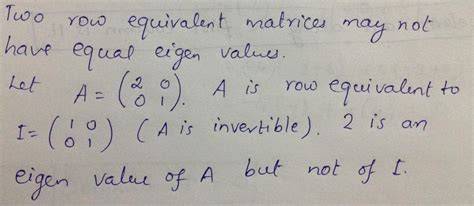 Two row equivalent matrices may not
have equal eigen values.
Let A = (2 0
0 1). A is row equivalent to
I = (1 0
0 1) (A is invertible). 2 is an
eigen value of A but not of I.